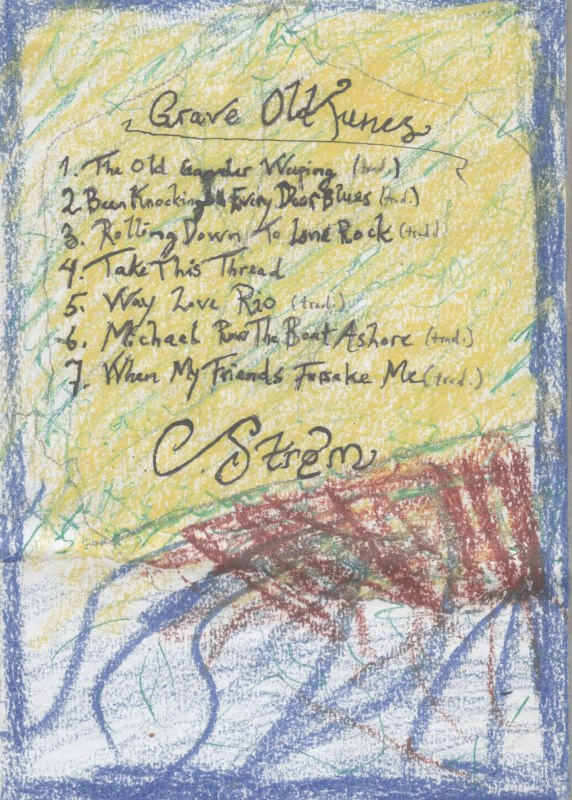 Grave Old Tunes
1. The Old Gander Weeping (trad.)
2. Been Knocking At Every Door Blues (trad.)
3. Rolling Down To Lone Rock (trad.)
4. Take This Thread
5. Way Love Rio (trad.)
6. Michael Row The Boat Ashore (trad.)
7. When My Friends Forsake Me (trad.)
C. Strøm